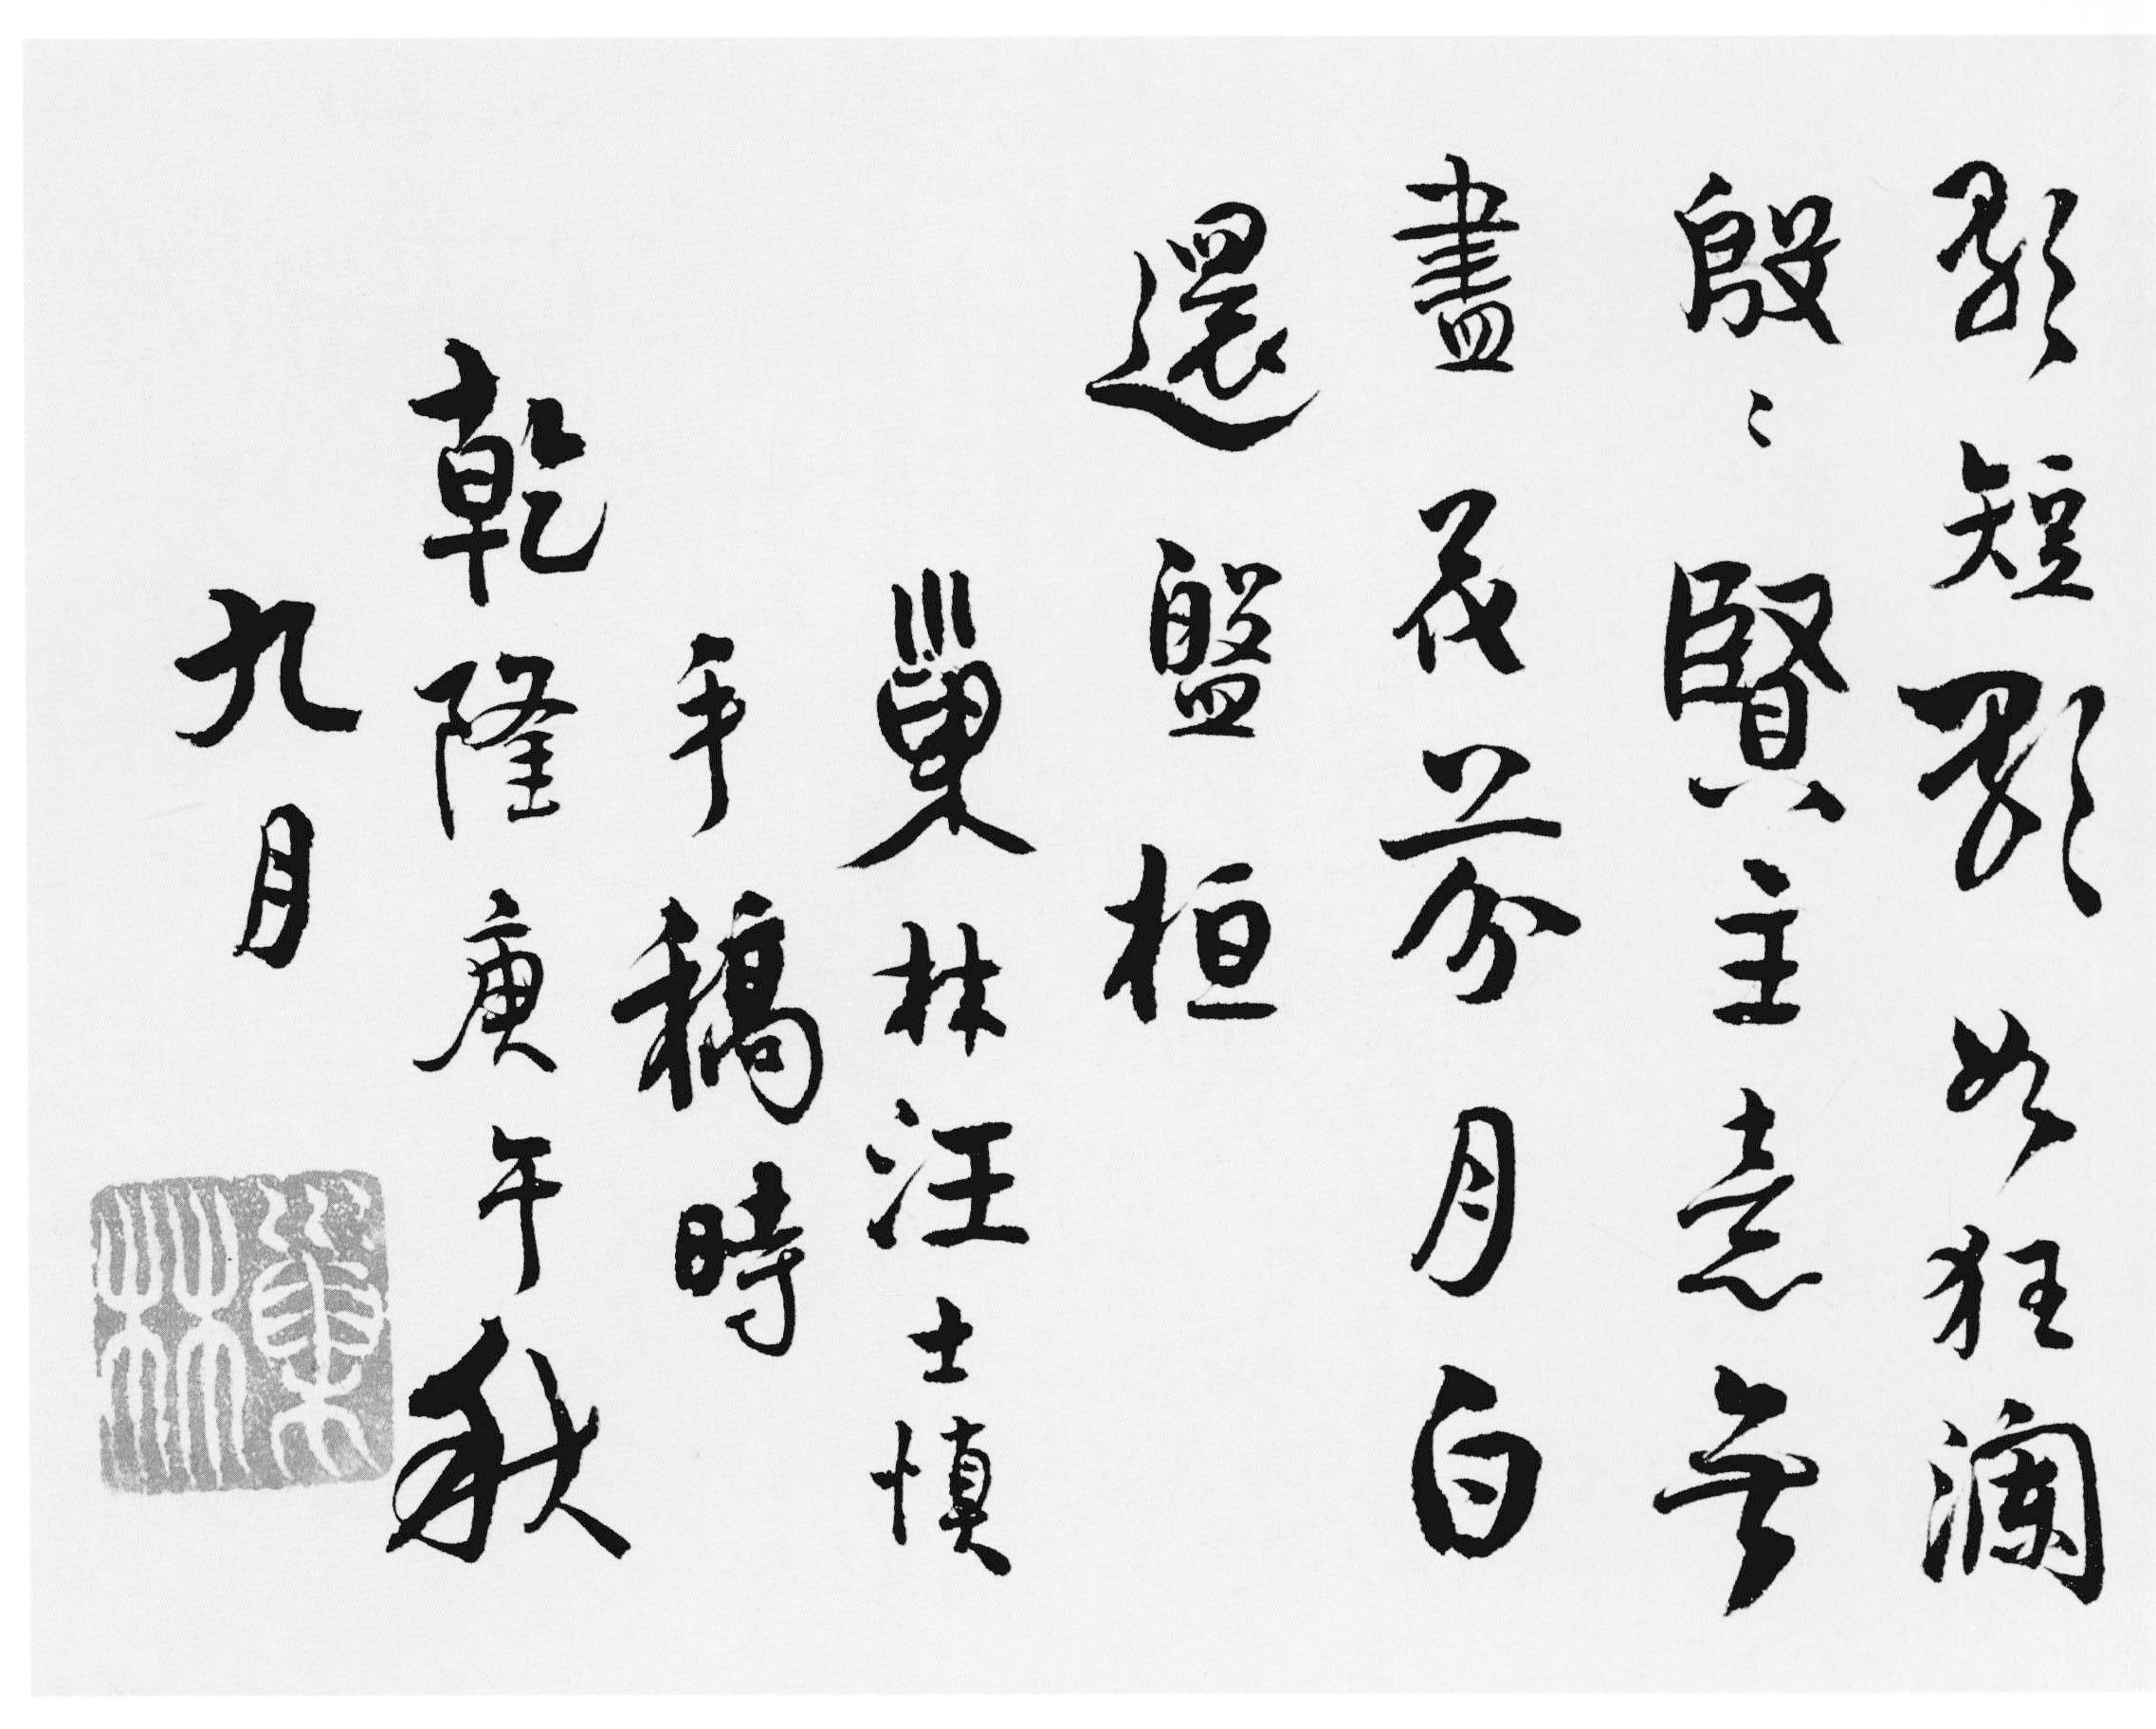 歌短歌如狂瀾
殷〻賢主意無
盡芬月白
還盤桓
巢林汪士慎
手稿時
乾隆庚午秋
九月
巢林